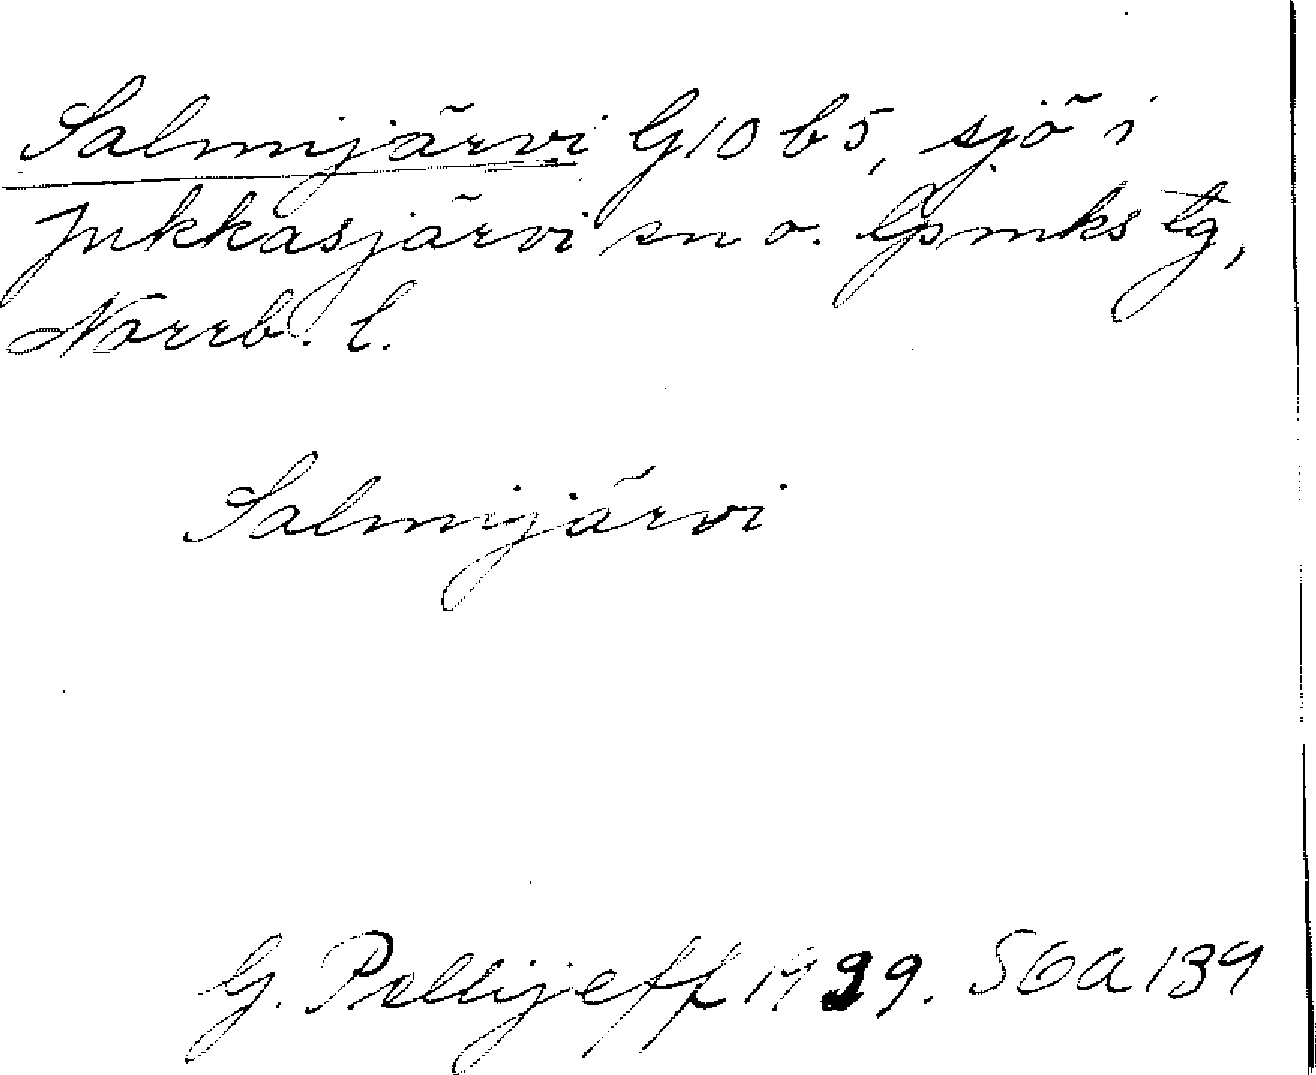 Salmijärvi G10 b5, sjö i
Jukkasjärvi sn o. lpmks tg,
Norrb. l.
Salmijärvi
G. Pellijeff 1939. SOA 139